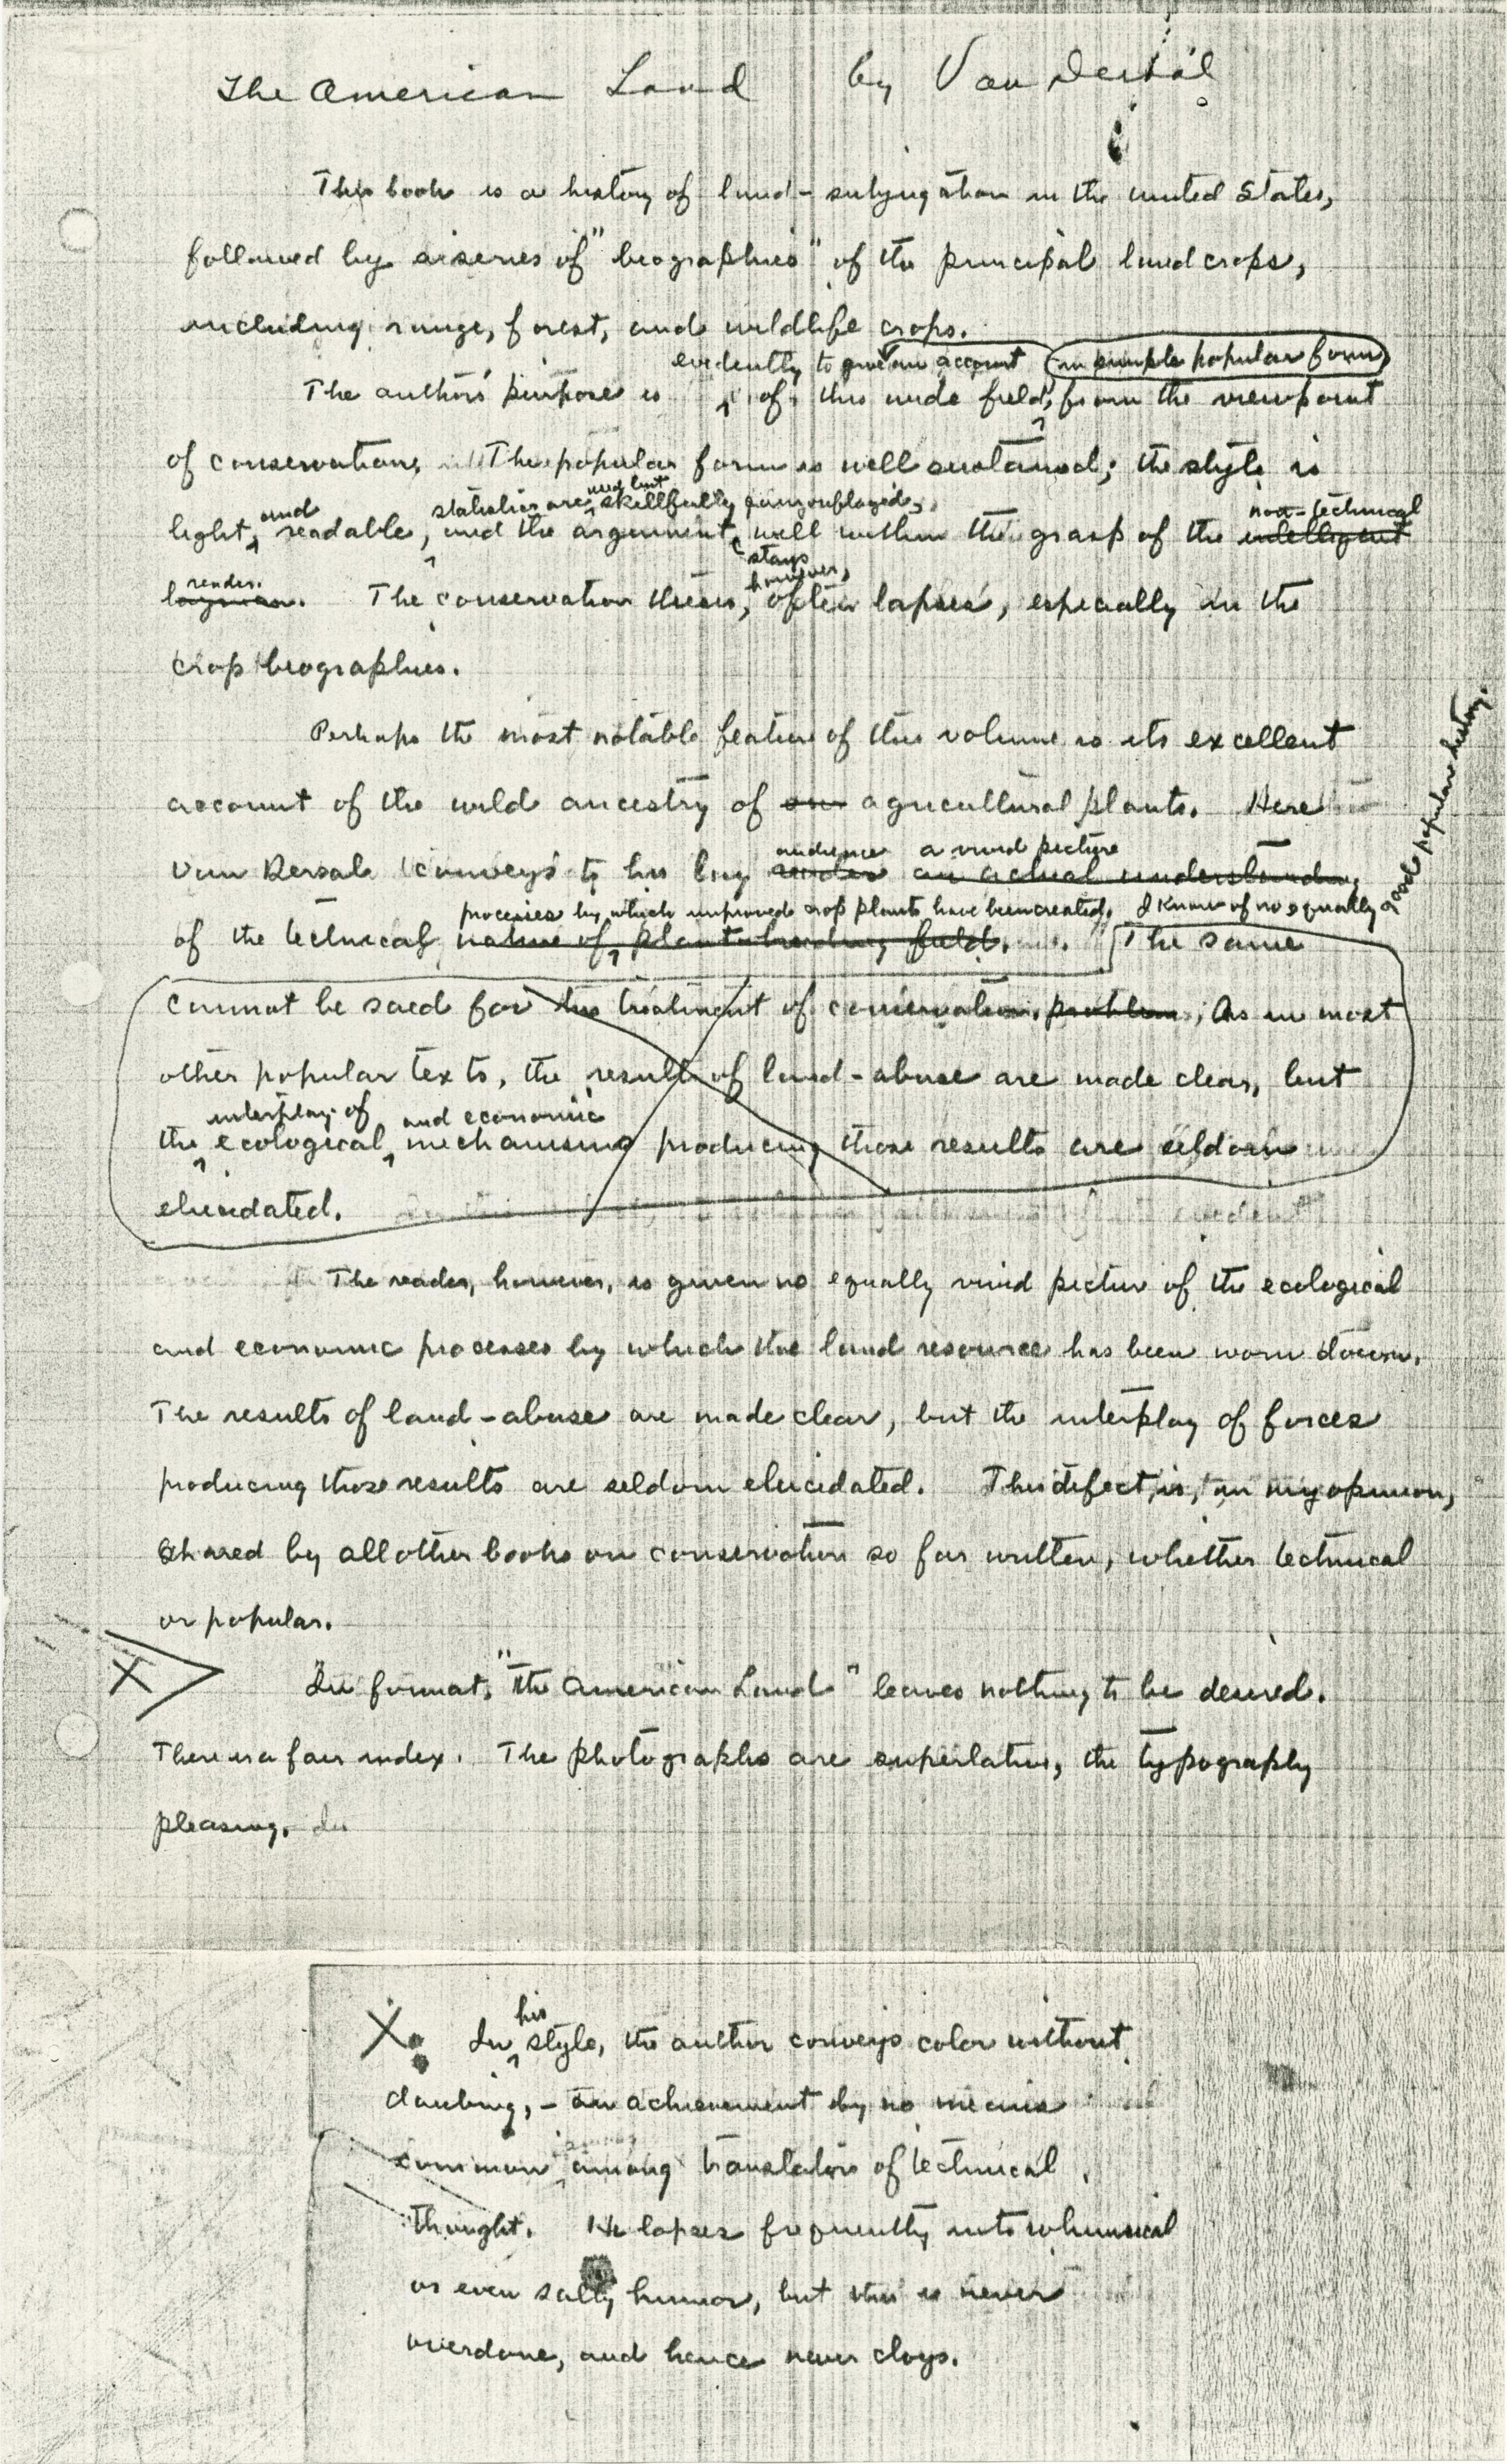 The American Land by Van Dersal
This book is a history of land-subjugation in the united States,
followed by a series of "biographies" of the principal land crops,
including range, forest, and wildlife crops.
evidently to give an account in simple popular form
The author's purpose is of this wide field, from the viewpoint
of conservation. The popular form is well sustained; the style is
and statistics are used but skillfully camouflaged, non-technical
light, readable, and the argument, well within the grasp of the intelligent
reader. stays however,
layman. The conservation thesis, often lapses, especially in the
crop biographies.
Perhaps the most notable feature of this volume is its excellent
account of the wild ancestry of our agricultural plants. Here
audience a vivid picture
Van Dersal conveys to his lay reader an actual understanding
processes by which improved crop plants have been created. I know of no equally good popular history.
of the technical nature of plant-breeding field. The same
cannot be said for his treatment of conservation problems; As in most
other popular texts, the results of land-abuse are made clear, but
interplay of and economic
the ecological mechanisms producing those results are seldom
elucidated.
The reader, however, is given no equally vivid picture of the ecological
and economic processes by which the land resource has been worn down.
The results of land-abuse are made clear, but the interplay of forces
producing those results are seldom elucidated. This defect, is, in my opinion,
shared by all other books on conservation so far written, whether technical
or popular.
X
In format, "the American Land" leaves nothing to be desired.
There is a fair index. The photographs are superlative, the typography
pleasing. In
his
X. In style, the author conveys color without
daubing, - an achievement by no means
common among translators of technical
thought. He lapses frequently into whimsical
or even salty humor, but this is never
overdone, and hence never cloys.